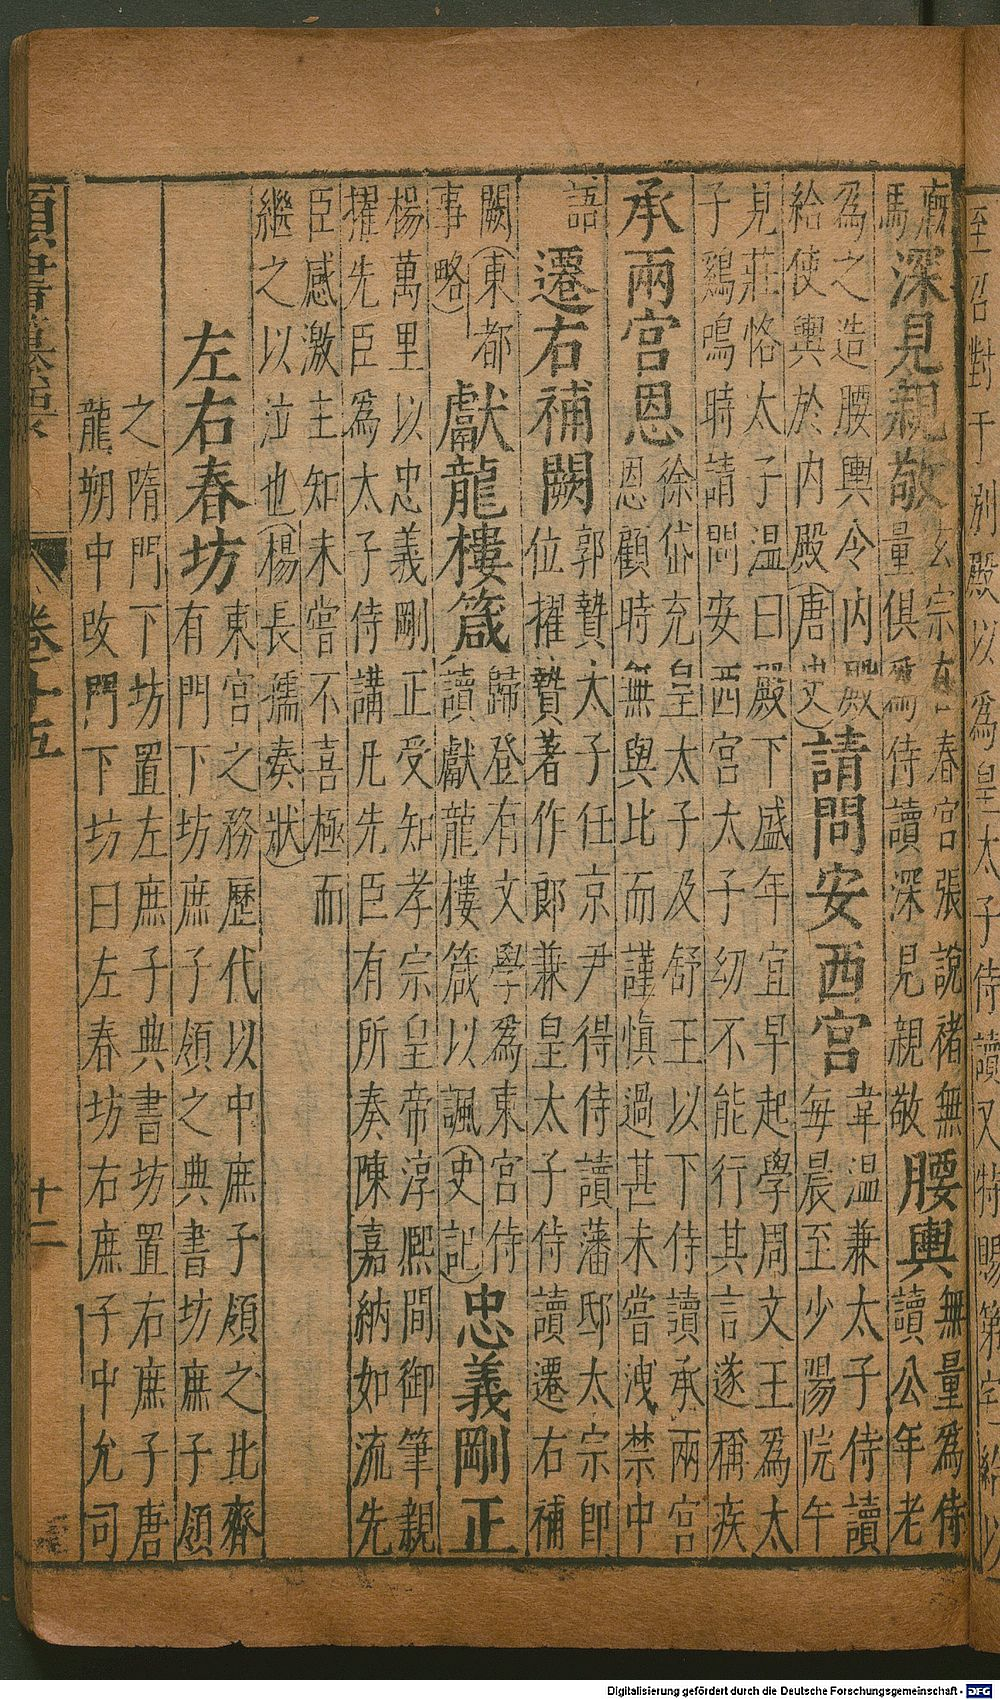 至召對于別殿以爲皇太子侍讀又特賜第宅給以
廐
馬
深見親敬
玄宗在春宮張說褚無
量俱爲侍讀深見親敬
腰輿
無量爲侍
讀公年老
爲之造腰輿令内殿
給使輿於内殿(唐史)
請問安西宮
韋溫兼太子侍讀
每晨至少陽院午
見莊恪太子溫曰殿下盛年宜早起學周文王爲太
子鷄鳴時請問安西宮太子幼不能行其言遂稱疾
承兩宮恩
徐岱充皇太子及舒王以下侍讀承兩宮
恩顧時無與比而謹慎過甚未嘗洩禁中
語
遷右補闕
郭贄太子任京尹得侍讀藩邸太宗即
位擢贄著作郎兼皇太子侍讀遷右補
闕(東都
事略)
獻龍樓箴
歸登有文學爲東宮侍
讀獻龍樓箴以諷(史記)
忠義剛正
楊萬里以忠義剛正受知孝宗皇帝淳熙間御筆親
擢先臣爲太子侍講凡先臣有所奏陳嘉納如流先
臣感激主知未嘗不喜極而
繼之以泣也(楊長孺奏狀)
左右春坊
東宮之務歷代以中庶子領之北齊
有門下坊庶子領之典書坊庶子領
之隋門下坊置左庶子典書坊置右庶子唐
龍朔中改門下坊曰左春坊右庶子中允司
卷十五
十二
Digitalisierung gefördert durch die Deutsche Forschungsgemeinschaft - DFG